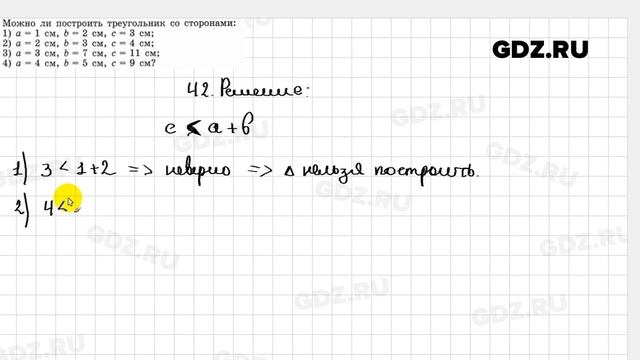 Можно ли построить треугольник со сторонами:
1) a = 1 см, b = 2 см, c = 3 см;
2) a = 2 см, b = 3 см, c = 4 см;
3) a = 3 см, b = 7 см, c = 11 см;
4) a = 4 см, b = 5 см, c = 9 см?
GDZ.RU
42. Решение:
c < a + b
1) 3 < 1+2 => неверно => Δ нельзя построить.
2) 4 <
GDZ.RU
GDZ.RU
GDZ.RU
GDZ.RU
GDZ.RU
GDZ.RU